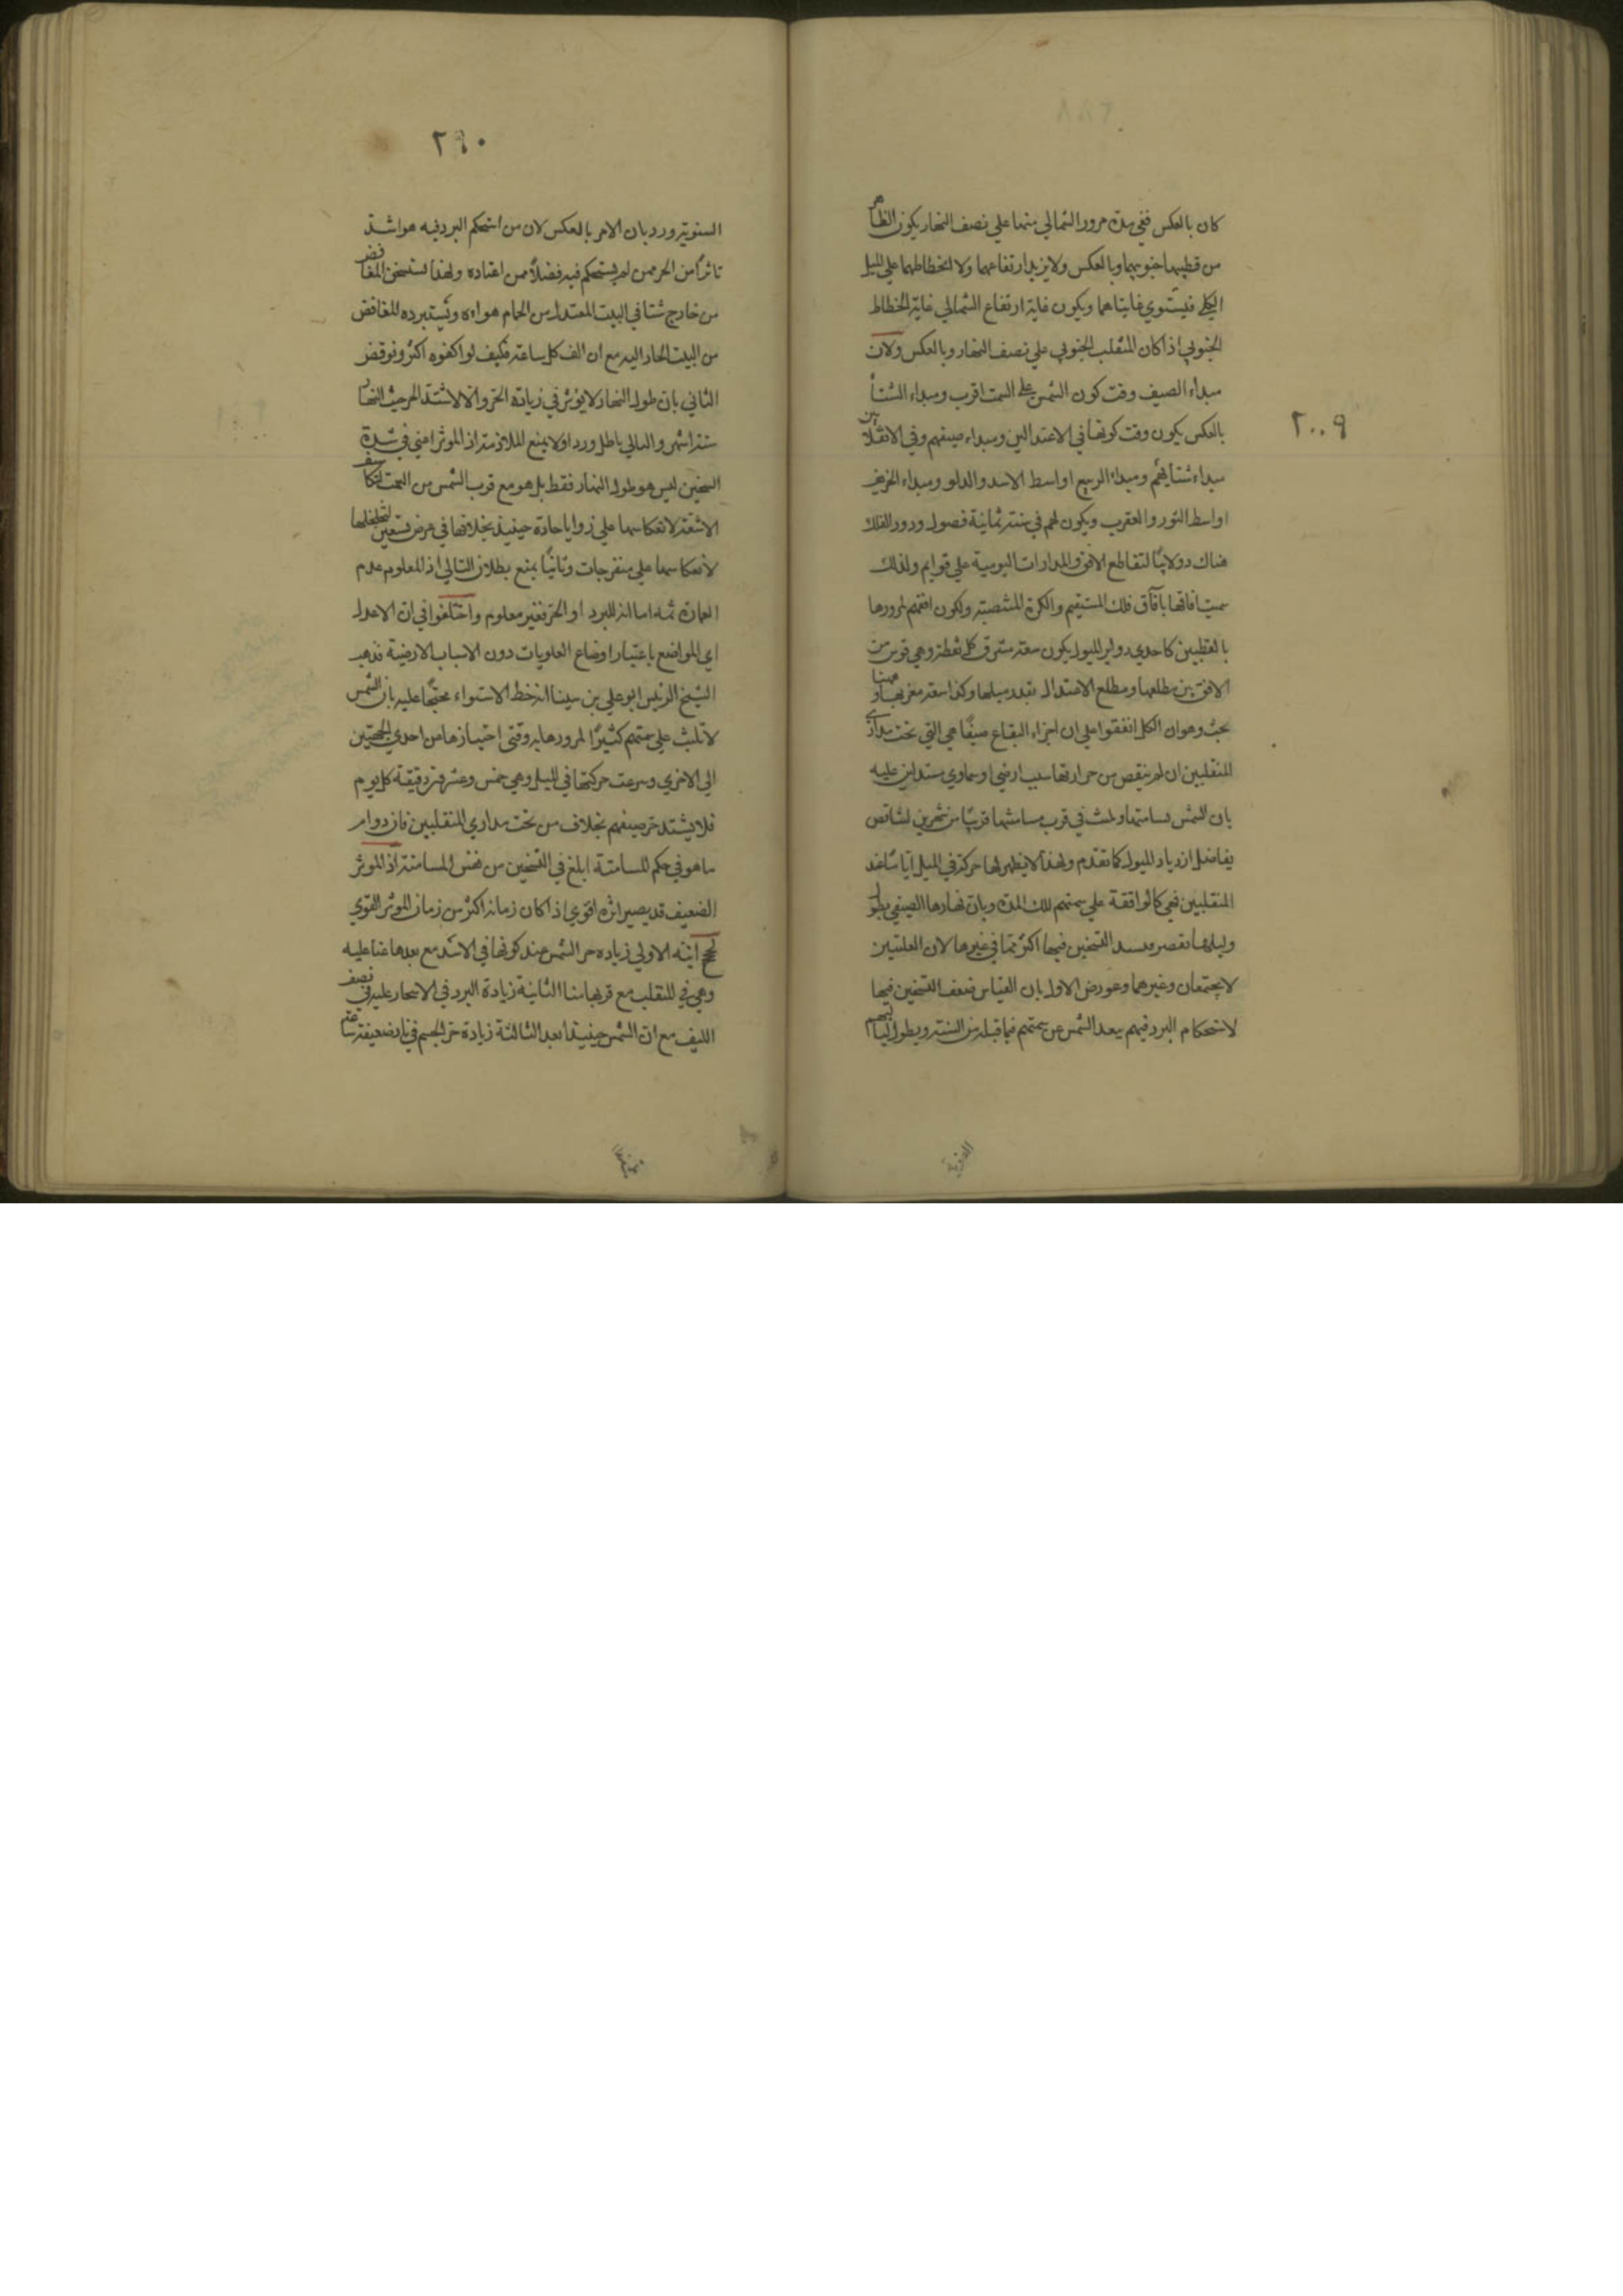 كان بالعكس ففي مدة مرور الشمالي منهما علي نصف النهار يكون الظاهر
من قطبيها جنوبيهما وبالعكس ولا يزيد ارتفاعهما ولا انحطاطهما علي الميل
الكلي فيستوي غايتاهما ويكون غاية ارتفاع الشمالي غاية انحطاط
الجنوبي اذا كان المنقلب الجنوبي علي نصف النهار وبالعكس ولان
مبداء الصيف وقت كون الشمس علي السمت اقرب ومبداء الشتا
بالعكس يكون وقت كونها في الاعتدالين مبداء صيفهم وفي الانقلابين
مبداء شتائهم ومبداء الربيع اواسط الاسد والدلو ومبداء الخريف
اواسط الثور والعقرب ويكون لهم في سنته ثمانية فصول ودور الفلك
هناك دولابيا لتقاطع الافق والمدارات اليومية علي قوايم ولذلك
سميت افاقها بآفاق فلك المستقيم والكرة المنتصبة ولكون افقهم لمرورها
بالقطبين كاحدي دواير الميول يكون سعة مشرق كل نقطة وهي قوس من
الافق بين مطلعها ومطلع الاعتدال بقدر ميلها وكذا سعة مغربها وههنا
بحث وهو ان الكل اتفقوا علي ان احر البقاع صيفا هي التي تحت مداري
المنقلبين ان لم ينقص من حرارتها سبب ارضي او سماوي مستدلين عليه
بان الشمس تسامتها وتلبث في قرب مسامتتها قريبا من شهرين لتناقص
تفاضل ازدياد الميول كما تقدم ولهذا لا يظهر لها حركة في الميل اياما عند
المنقلبين فهي كالواقفة علي سمتهم تلك المدة وبان نهارها الصيفي يطول
وليلها يقصر التسخين فيها اكثر مما في غيرها لان العلتين
لا يجتمعان وغيرهما وعورض الاول بان القياس ضعف التسخين فيها
لاستحكام البرد فيهم ببعد الشمس عن سمتهم فيما قبله من السنة وبطول لياليهم
٢٠٠٩
٢٦٠
السنوية ورد بان الامر بالعكس لان من استحكم البرد فيه هو اشد
تاثرا من الحر ممن لم يستحكم فيه فضلا ممن اعتاده ولهذا يستسخن المغافض
من خارج شتا في البيت المعتدل من الحمام هواءه ويستبرده المغافض
من البيت الحار اليه مع ان الف كل ساعة فكيف لو اكفوه اكثر ونوقض
الثاني بان طول النهار لا يؤثر في زيادة الحر والا لاشتد الحر حيث النهار
ستة اشهر والتالي باطل ورد اولا بمنع الملازمة اذ المؤثر اعني في شدة
التسخين ليس هو طول النهار فقط بل هو مع قرب الشمس من السمت لتكاثف
الاشعة لانعكاسها علي زوايا حادة حينئذ بخلافها في عرض تسعين لتخلخلها
لانعكاسها علي منفرجات وثانيا بمنع بطلان التالي اذ المعلوم عدم
العمارة ثمه اما انه للبرد او الحر فغير معلوم واختلفوا في ان الاعدل
اي المواضع باعتبار اوضاع العلويات دون الاسباب الارضية فذهب
الشيخ الرئيس ابو علي بن سينا انه خط الاستواء محتجا عليه بان الشمس
لا تلبث علي سمتهم كثيرا لمرورها به وقتي اجتيازها من احدي الجهتين
الي الاخري وسرعة حركتها في الميل وهي خمس وعشرون دقيقة كل يوم
فلا يشتد حر صيفهم بخلاف من تحت مداري المنقلبين فان دوام
ما هو في حكم المسامتة ابلغ في التسخين من نفس المسامتة اذ المؤثر
الضعيف قد يصير اثره اقوي اذا كان زمانه اكثر من زمان المؤثر القوي
لحجج انية الاولي زيادة حر الشمس عند كونها في الاسد مع بعدها عنا عليه
وهي في المنقلب مع قربها منا الثانية زيادة البرد في الاسحار عليه في نصف
الليل مع ان الشمس حينئذ ابعد الثالثة زيادة حر الجسم في نار ضعيفة ساعة